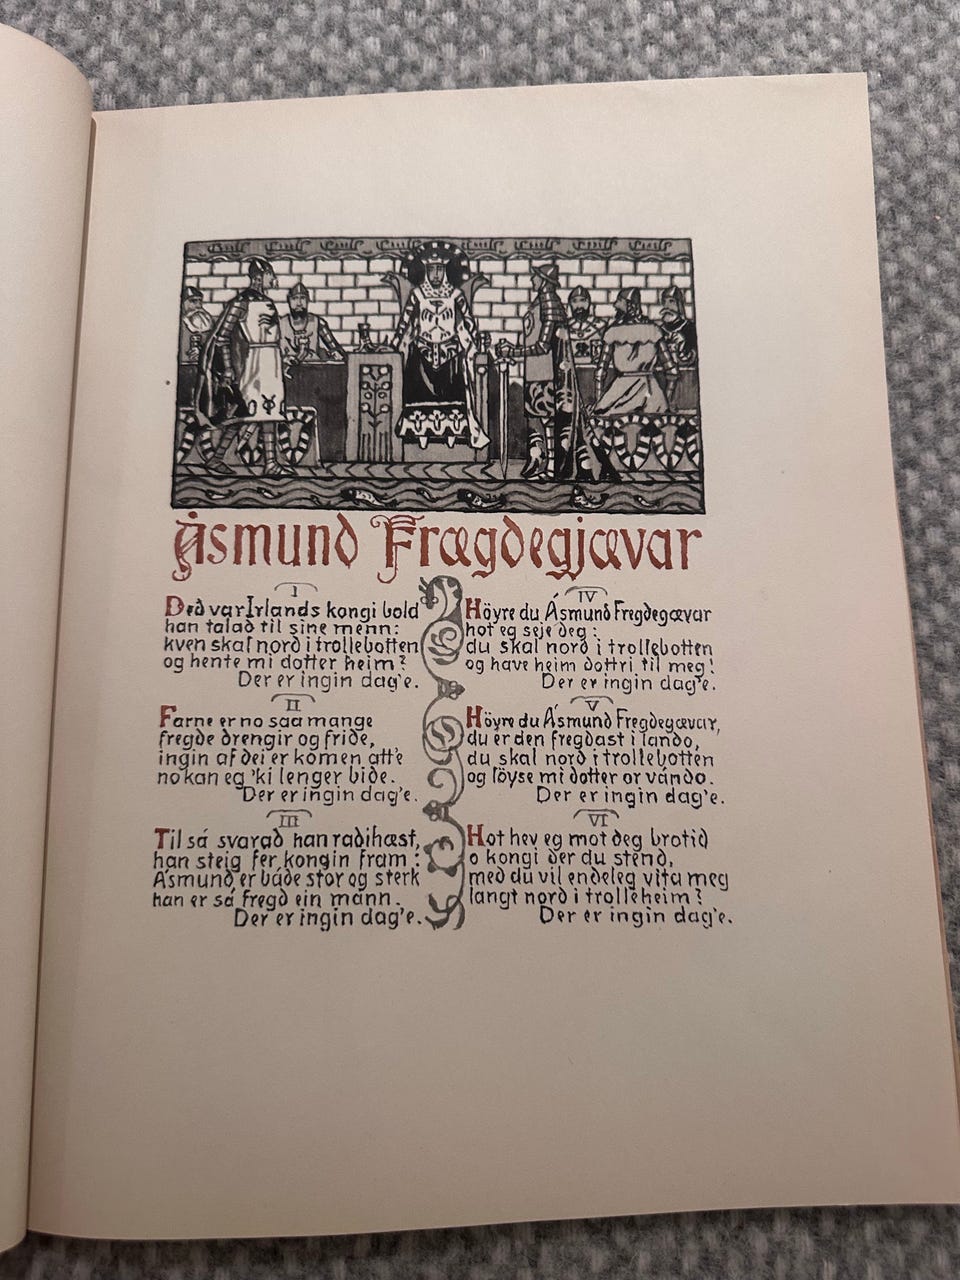 Åsmund Frægdegjævar
I
Ded var Irlands kongi bold
han talad til sine menn:
kven skal nord i trollebotten
og hente mi dotter heim?
Der er ingin dag'e.
II
Farne er no saa mange
fregde drengir og fride,
ingin af dei er komen att'e
no kan eg 'ki lenger bide.
Der er ingin dag'e.
III
Til så svarad han radihæst,
han steig fer kongin fram:
Åsmund er både stor og sterk
han er så fregd ein mann.
Der er ingin dag'e.
IV
Höyre du Åsmund Fregdegævar
hot eg seje deg:
du skal nord i trollebotten
og have heim dottri til meg!
Der er ingin dag'e.
V
Höyre du Åsmund Fregdegævar,
du er den fregdast i lando,
du skal nord i trollebotten
og löyse mi dotter or vándo.
Der er ingin dag'e.
VI
Hot hev eg mot deg brotid
o kongi der du stend,
med du vil endeleg vita meg
langt nord i trolleheim?
Der er ingin dag'e.